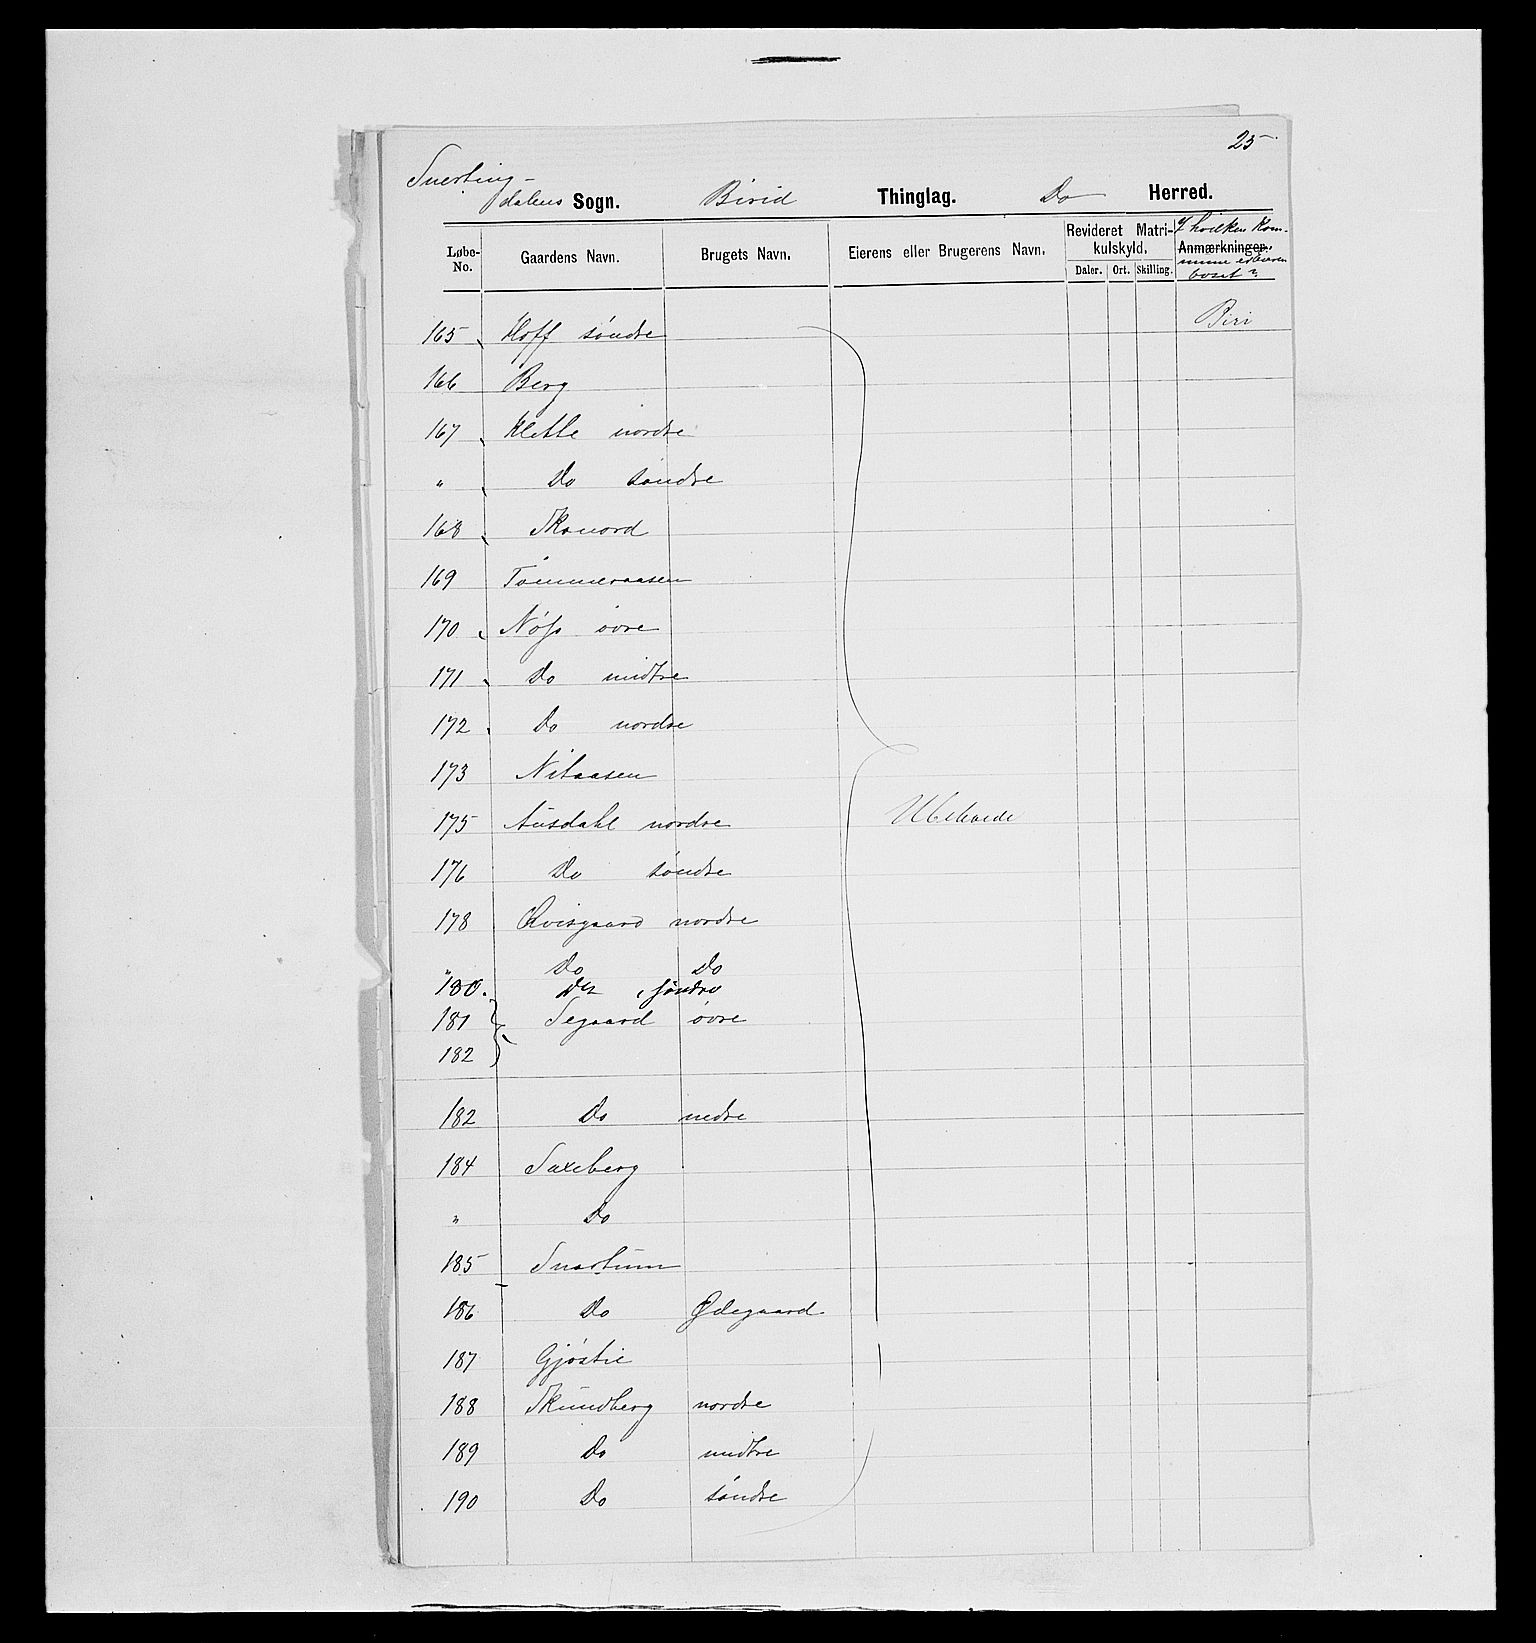 25
Snerting-
dalens Sogn. Birid Thinglag. Do Herred.
Løbe-No. Gaardens Navn. Brugets Navn. Eierens eller Brugerens Navn. Revideret Matrikulskyld. Daler. Ort. Skilling. Anmærkninger. I hvilken Kommune er Eieren bosat?
165 Hoff søndre Biri
166 Berg
167 Klette nordre
" Do søndre
168 Skonord
169 Tømmeraasen
170 Nøss øvre
171 Do midtre
172 Do nordre
173 Nitaasen
175 Ausdahl nordre Ubeboede
176 Do søndre
178 Qvisgaard nordre
" Do Do
180. Do søndre
181 Segaard øvre
182
182 Do nedre
184 Saxeberg
" Do
185 Snartum
186 Do Ødegaard
187 Gjøstie
188 Skundberg nordre
189 Do midtre
190 Do søndre